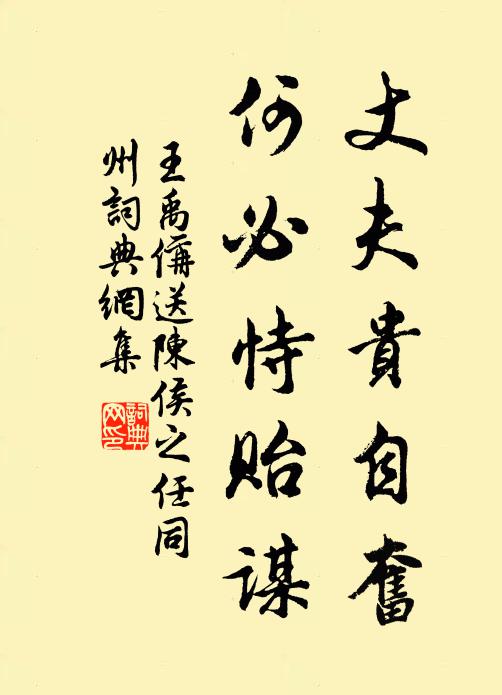 丈夫貴自奮
何必恃貽謀
王禹偁送陳侯之任同
州詞典網集
詞典
网印